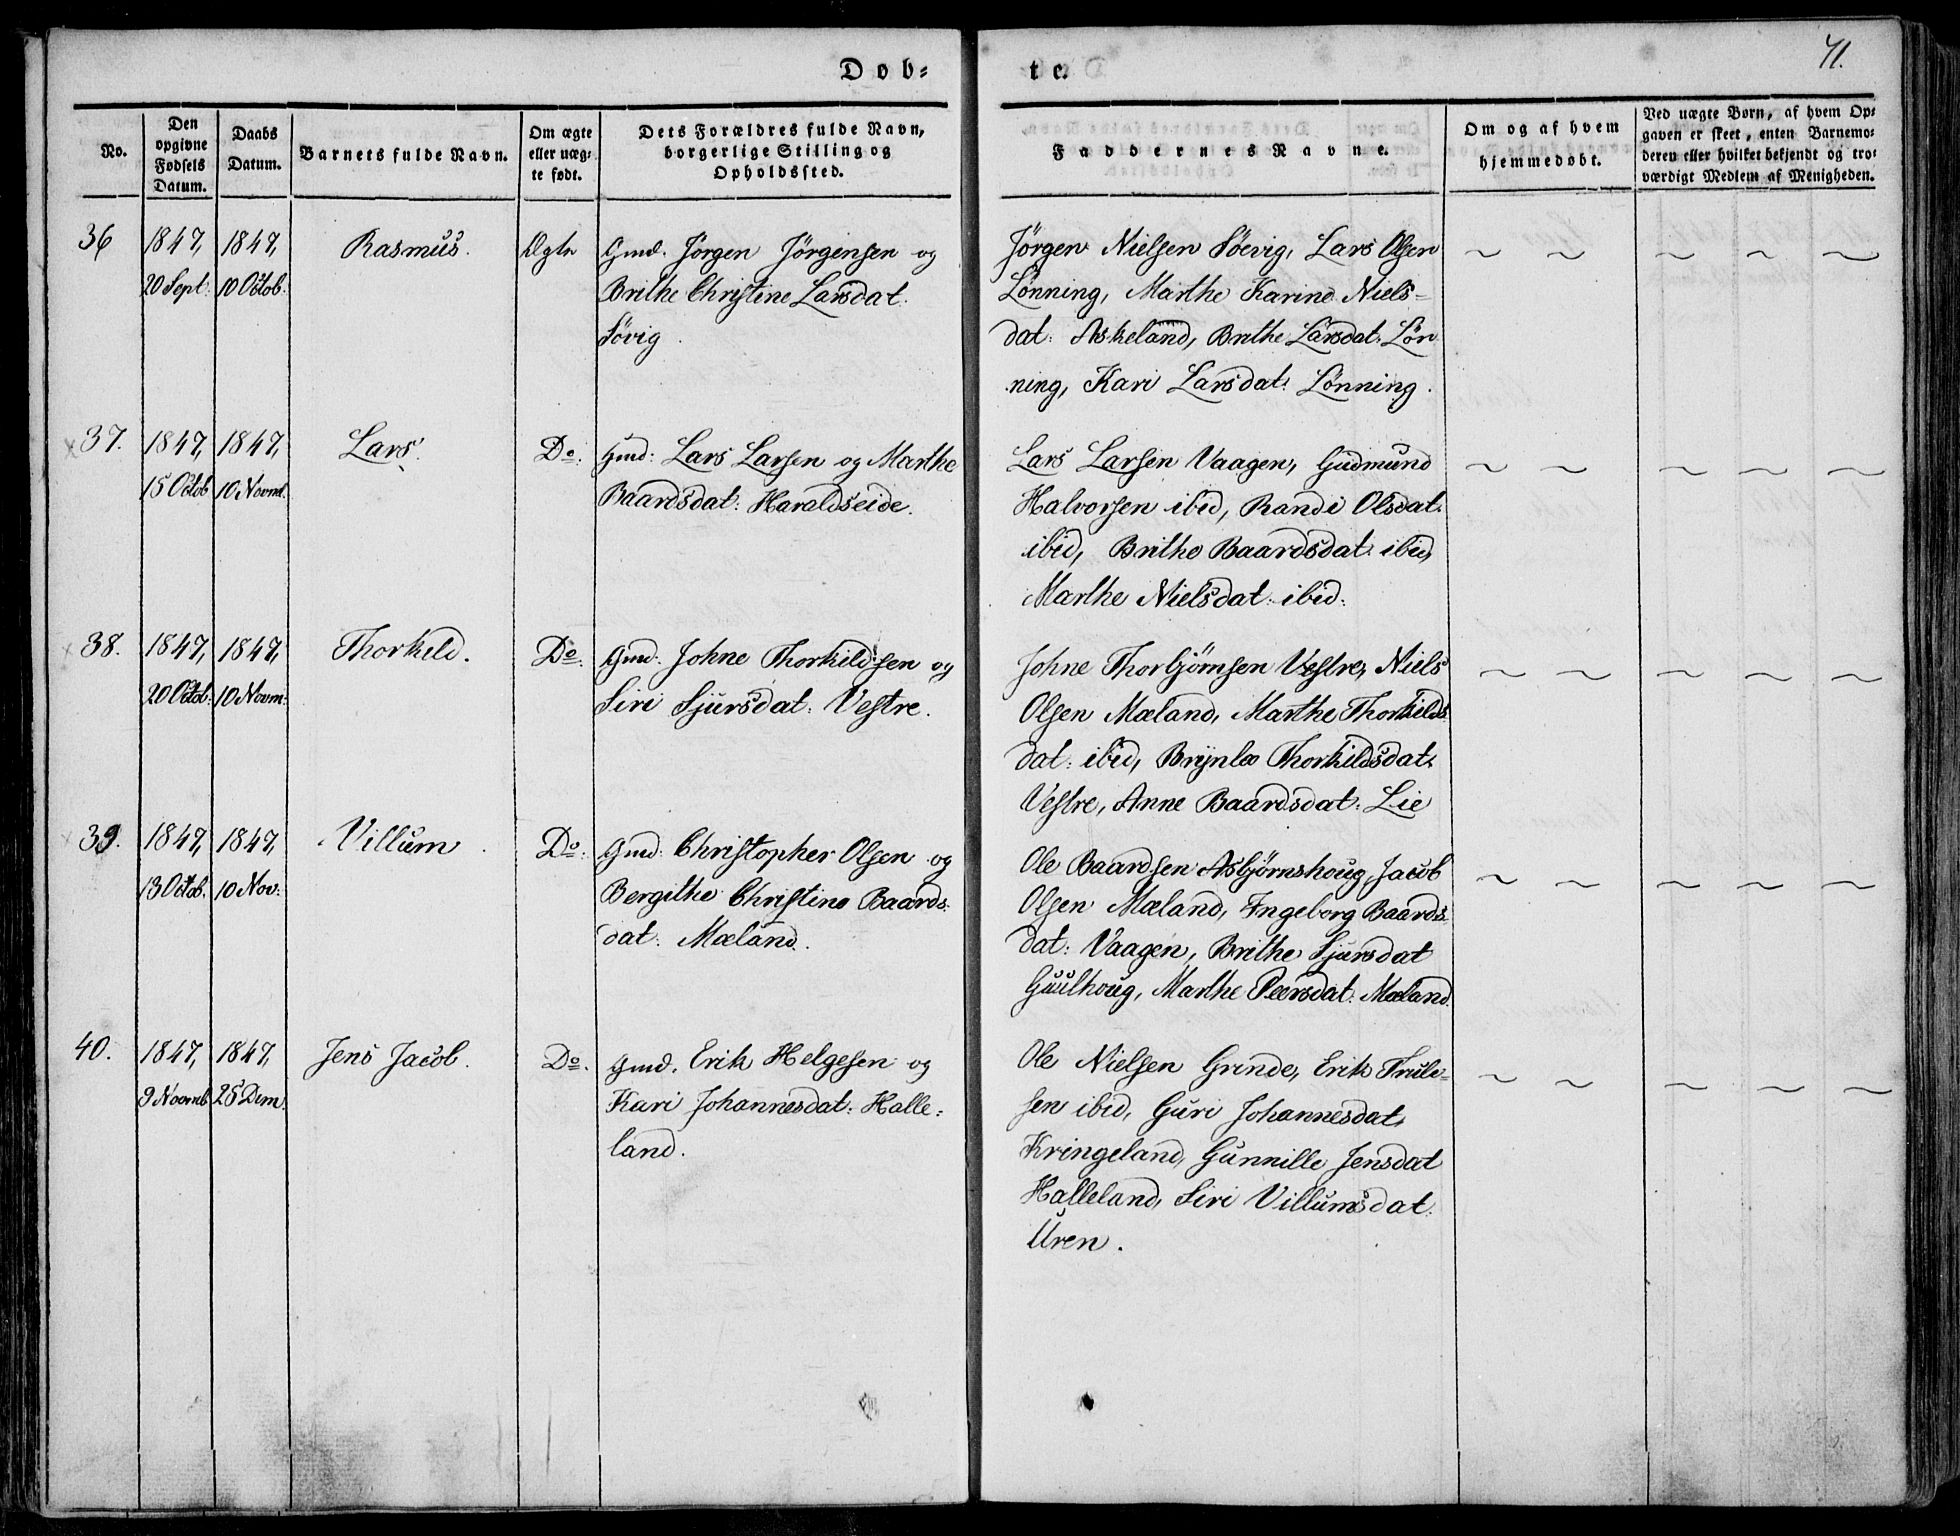 Døb-
te.
71.
No.
Den opgivne Fødsels Datum.
Daabs Datum.
Barnets fulde Navn.
Om ægte eller uægte født.
Dets Forældres fulde Navn, borgerlige Stilling og Opholdssted.
Faddernes Navne.
Om og af hvem hjemmedøbt.
Ved uægte Børn, af hvem Opgaven er skeet, enten Barnemoderen eller hvilket bekjendt og troværdigt Medlem af Menigheden.
36
1847, 20 Sept.
1847, 10 Octob.
Rasmus.
Ægte
Gmd. Jörgen Jörgensen og
Brithe Christine Larsdat.
Sövig.
Jörgen Nielsen Söevig, Lars Olsen
Lönning, Marthe Karine Niels-
dat: Askeland, Brithe Larsdat. Lön
ning, Kari Larsdat. Lönning.
37.
1847, 15 Octob
1847, 10 Novmb.
Lars.
Do.
Gmd: Lars Larsen og Marthe
Baardsdat: Haraldseide.
Lars Larsen Vaagen, Gudmund
Halvorsen ibid, Randi Olsdat.
ibid, Brithe Baardsdat. ibid,
Marthe Nielsdat. ibid.
38.
1847, 20 Octob:
1847, 10 Novm:
Thorkeld.
Do.
Gmd: Johne Thorkildsen og
Siri Sjursdat: Vestre.
Johne Thorbjörnsen Vestre, Niels
Olsen Mæland, Marthe Thorkilds
dat: ibid, Brynlæ Thorkildsdat.
Vestre, Anne Baardsdat. Lie
39.
1847, 13 Octob.
1847, 10 Nov:
Villum.
Do.
Gmd: Christopher Olsen og
Bergithe Christine Baards-
dat: Mæland.
Ole Baardsen Asbjørnshoug, Jacob
Olsen Mæland, Ingeborg Baards
dat: Vaagen, Brithe Sjursdat
Guulhoug, Marthe Peersdat. Mæland.
40.
1847, 9 Novmb
1847, 25 Dem.
Jens Jacob.
Do.
Gmd. Erik Helgesen og
Kari Johannesdat: Halle-
land.
Ole Nielsen Grinde, Erik Truls-
sen ibid, Guri Johannesdat.
Kringeland, Gunnille Jensdat
Halleland, Siri Villumsdat.
Uren.